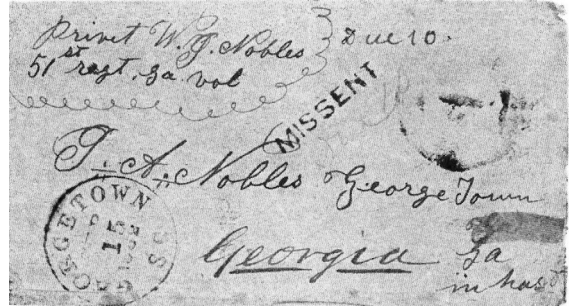 Privet W. J. Nobles
51st regt. Ga vol
Due 10.
MISSENT
T. A. Nobles George Town
Georgia Ga
in hast
GEORGETOWN
15
S.C.